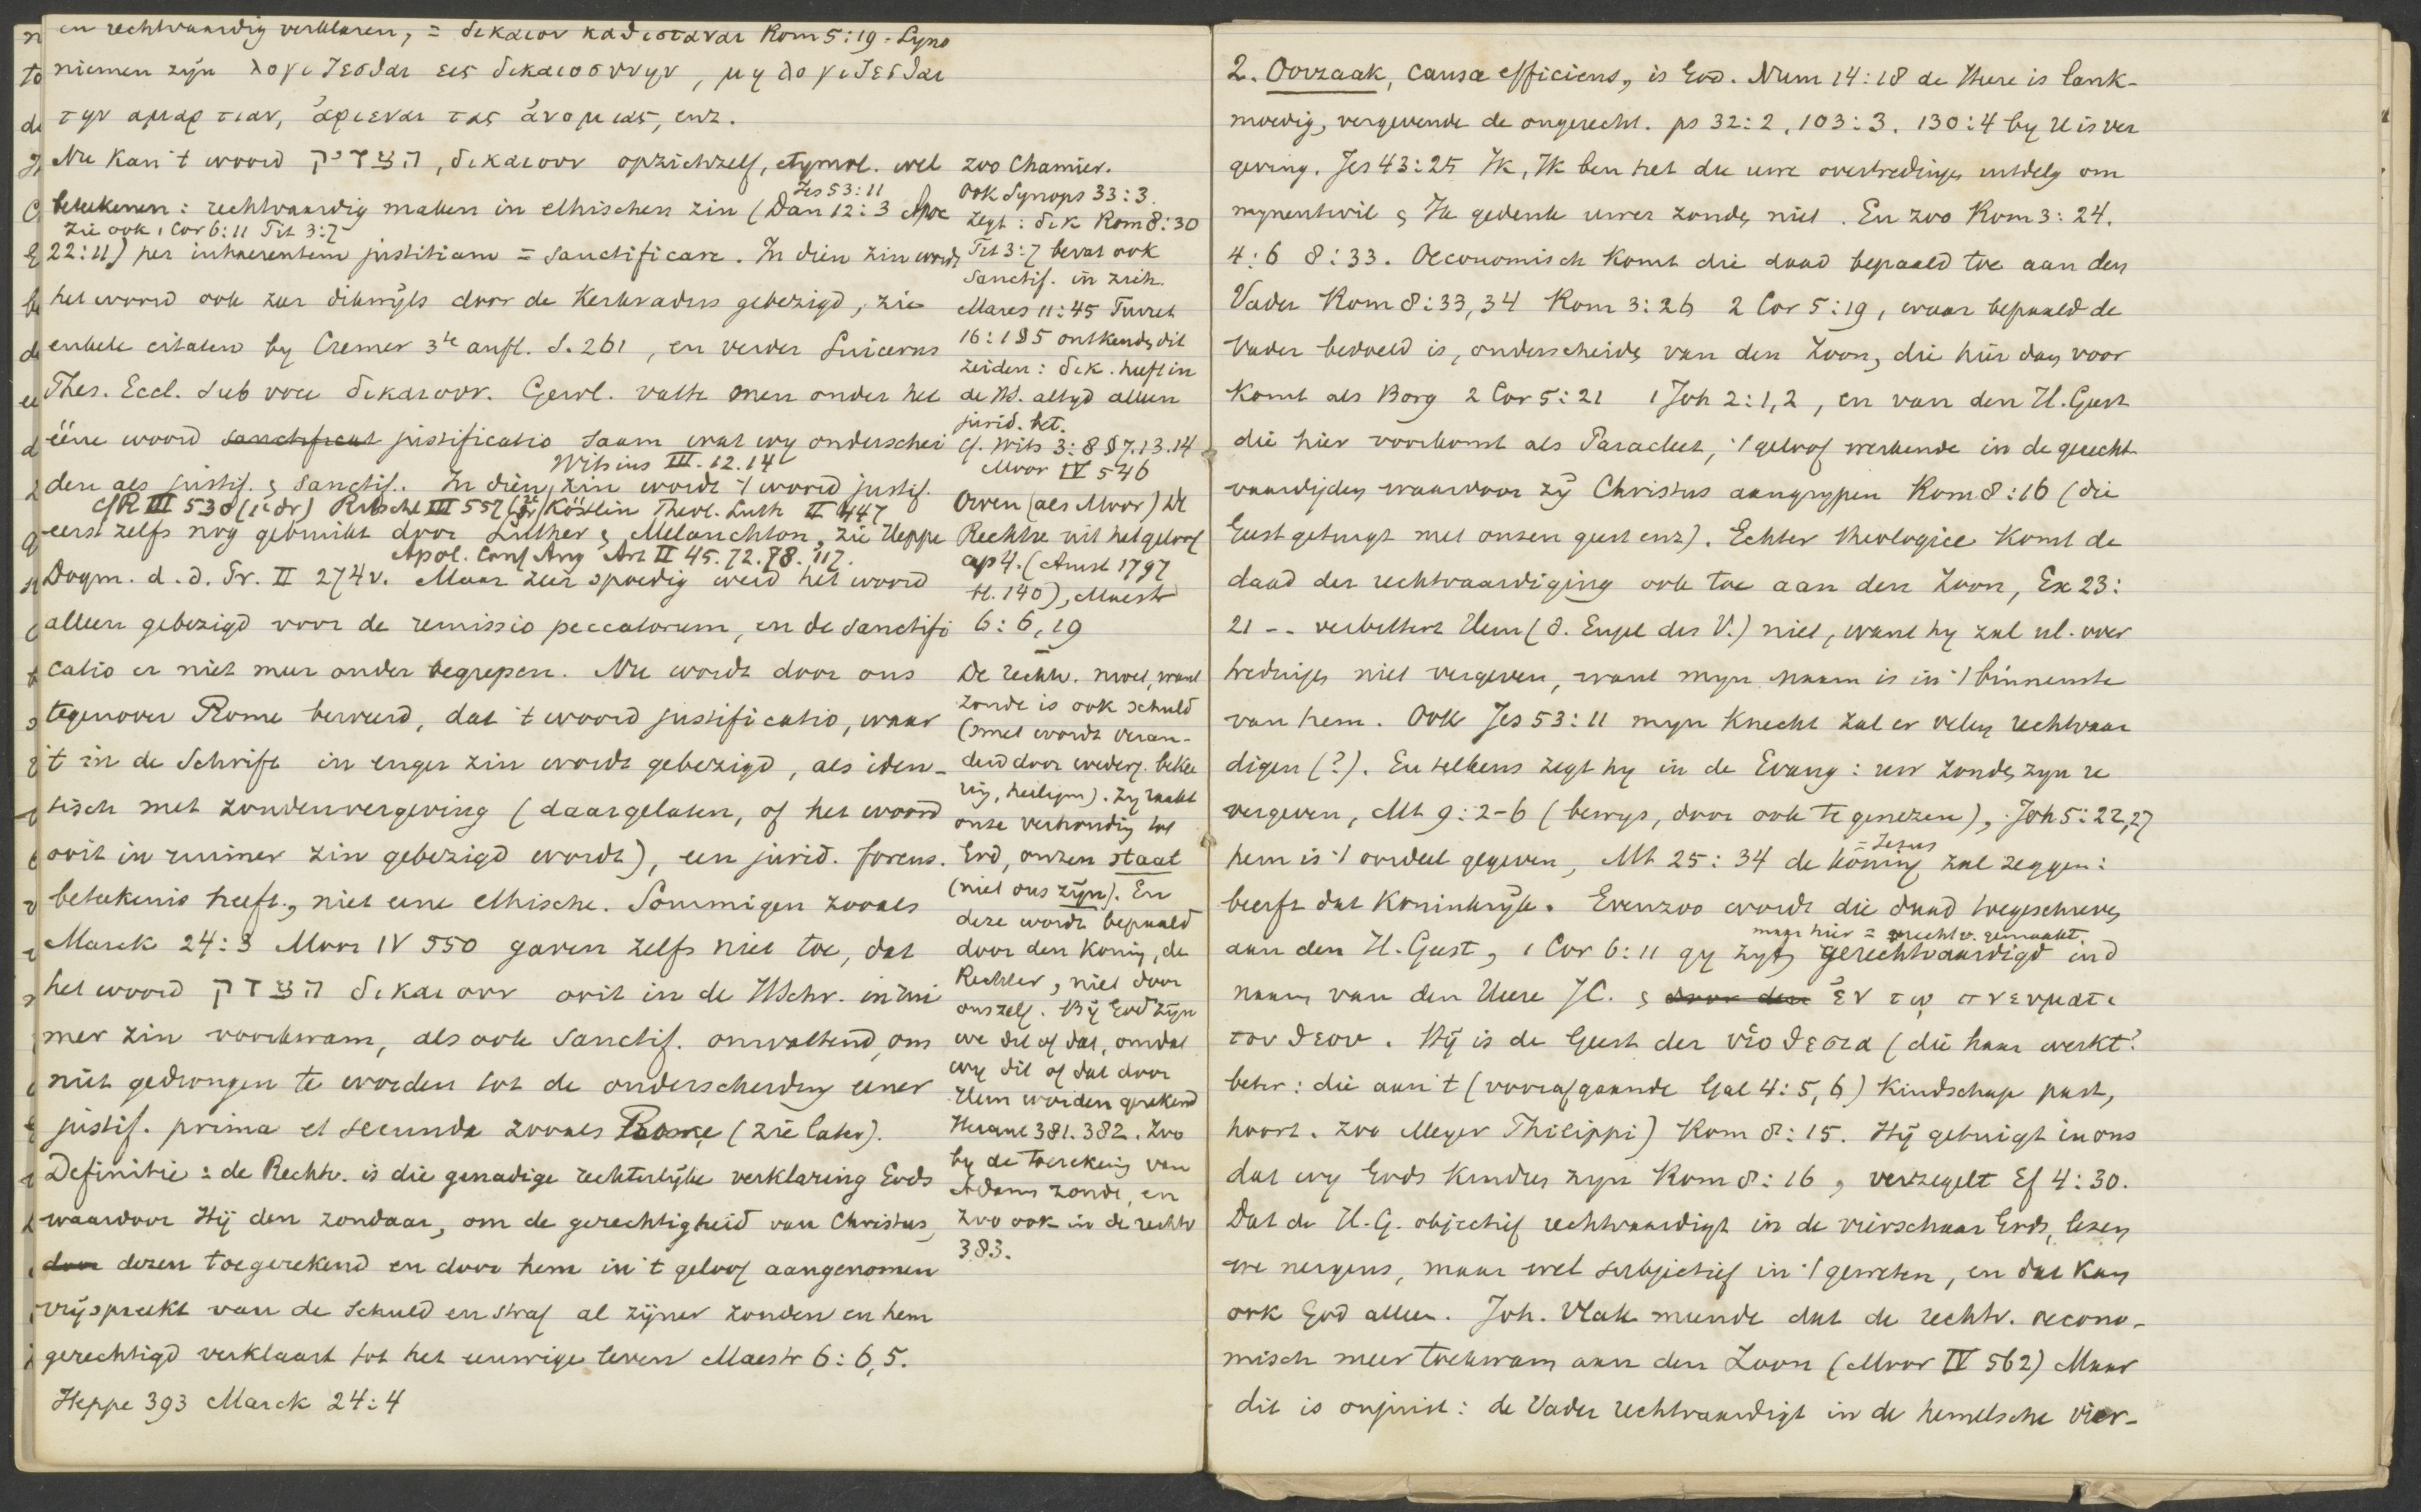 en rechtvaardig verklaren, = δικαιον καθισταναι Rom 5:19. Syno
niemen zijn λογιζεσθαι εις δικαιοσυνην, μη λογιζεσθαι
την αμαρτιαν, ἀφιεναι τας ἀνομιας, enz.
Nu kan 't woord הצדיק, δικαιουν opzichzelf, etymol. wel
Jes 53:11
beteekenen: rechtvaardig maken in ethischen zin (Dan 12:3 Apoc
zie ook 1 Cor 6:11 Tit 3:7
22:11) per inhaerentem justitiam = sanctificare. In dien zin wordt
het woord ook zeer dikwijls door de Kerkvaders gebezigd, zie
enkele citaten by Cremer 3te aufl. S. 261, en verder Suicerus
Thes. Eccl. sub voce δικαιουν. Gewl. vatte men onder het
ééne woord sanctificat justificatio saam wat wy onderschei
Witsius III. 12. 14
den als justif. & sanctif. In dien zin wordt 't woord justif.
cf R III 530 (1e dr) Ritschl III 557 (2e dr) Köstlin Theol. Luth II 447
eerst zelfs nog gebruikt door Luther & Melanchton, zie Heppe
Apol. Conf Aug Art II 45. 72. 78. 117.
Dogm. d. d. Pr. II 274 v. Maar zeer spoedig werd het woord
alleen gebezigd voor de remissio peccatorum, en de sanctifi
catio er niet meer onder begrepen. Nu wordt door ons
tegenover Rome beweerd, dat 't woord justificatio, waar
't in de Schrift in enger zin wordt gebezigd, als iden-
tisch met zondenvergeving (daargelaten, of het woord
ooit in ruimer zin gebezigd wordt), een jurid. forens.
beteekenis heeft, niet eene ethische. Sommigen zooals
Marck 24:3 Moor IV 550 gaven zelfs niet toe, dat
het woord הצדק δικαιουν ooit in de HSchr. in rui
mer zin voorkwam, als ook sanctif. omvattend, om
niet gedrongen te worden tot de onderscheiding eener
justif. prima et secunda zooals Rome (zie later).
Definitie: de Rechtv. is die genadige rechterlijke verklaring Gods
waardoor Hij den zondaar, om de gerechtigheid van Christus,
door dezen toegerekend en door hem in 't geloof aangenomen
vrijspreekt van de schuld en straf al zijner zonden en hem
gerechtigd verklaart tot het eeuwige leven Maestr 6:6,5.
Heppe 393 Marck 24:4
zoo Chamier.
Ook Synops 33:3.
zegt: δικ Rom 8:30
Tit 3:7 bevat ook
Sanctif. in zich.
Mares 11:45 Turret
16:1 § 5 ontkende dit
zeiden: δικ. heeft in
de HS. altyd alleen
jurid. bet.
cf. Wits 3:8 § 7. 13. 14
Moor IV 546
Owen (als Moor) De
Rechtv. uit het geloof
cap 4. (Amst 1797
bl. 140), Maestr
6:6, 19
De rechtv. moet, want
zonde is ook schuld
(smet wordt veran-
derd door wederg. bekee
ring, heiligm). Zy raakt
onze verhouding tot
God, onzen staat
(niet ons zijn). En
deze wordt bepaald
door den Koning, de
Rechter, niet door
onszelf. Bij God zijn
we dit of dat, omdat
wy dit of dat door
Hem worden gerekend
Heppe 381. 382. Zoo
by de toereken'g van
Adams zonde, en
zoo ook in de rechtv
383.
2. Oorzaak, causa efficiens, is God. Num 14:18 de Heere is lank-
moedig, vergevende de ongerecht. ps 32:2, 103:3. 130:4 by U is ver
geving. Jes 43:25 Ik, Ik ben het die uwe overtredingen uitdelg om
mynentwil & Ik gedenk uwer zonden niet. En zoo Rom 3:24.
4:6 8:33. Oeconomisch komt die daad bepaald toe aan den
Vader Rom 8:33,34 Rom 3:26 2 Cor 5:19, waar bepaald de
Vader bedoeld is, onderscheiden van den Zoon, die hier dan voor
komt als Borg 2 Cor 5:21 1 Joh 2:1,2, en van den H. Geest
die hier voorkomt als Paracleet, 't geloof werkende in de gerecht
vaardigden waardoor zij Christus aangrypen Rom 8:16 (die
Geest getuigt met onzen geest enz). Echter theologice komt de
daad der rechtvaardiging ook toe aan den Zoon, Ex 23:
21 -- verbittert Hem (d. Engel des V.) niet, want hy zal ul. over
tredingen niet vergeven, want myn naam is in 't binnenste
van hem. Ook Jes 53:11 myn Knecht zal er velen rechtvaar
digen (?). En telkens zegt hy in de Evang: uw zonden zyn u
vergeven, Mt 9:2-6 (bewys, door ook te genezen), Joh 5:22,27
= Jezus
hem is 't oordeel gegeven, Mt 25:34 de koning zal zeggen:
beerft dat Koninkrijk. Evenzoo wordt die daad toegeschreven
maar hier = rechtv. gemaakt.
aan den H. Geest, 1 Cor 6:11 gy zyt gerechtvaardigd in d
naam van den Heere JC. & door den ἐν τῳ πνευματι
του θεου. Hij is de Geest der υἱοθεσια (die haar werkt?
beter: die aan 't (voorafgaande Gal 4:5,6) Kindschap past,
hoort. zoo Meyer Philippi) Rom 8:15. Hij getuigt in ons
dat wy Gods kinderen zyn Rom 8:16, verzegelt Ef 4:30.
Dat de H. G. objectief rechtvaardigt in de vierschaar Gods, lezen
we nergens, maar wel subjectief in 't geweten, en dat kan
ook God alleen. Joh. Vlak meende dat de rechtv. oecono-
misch meer toekwam aan den Zoon (Moor IV 562) Maar
dit is onjuist: de Vader rechtvaardigt in de hemelsche vier-